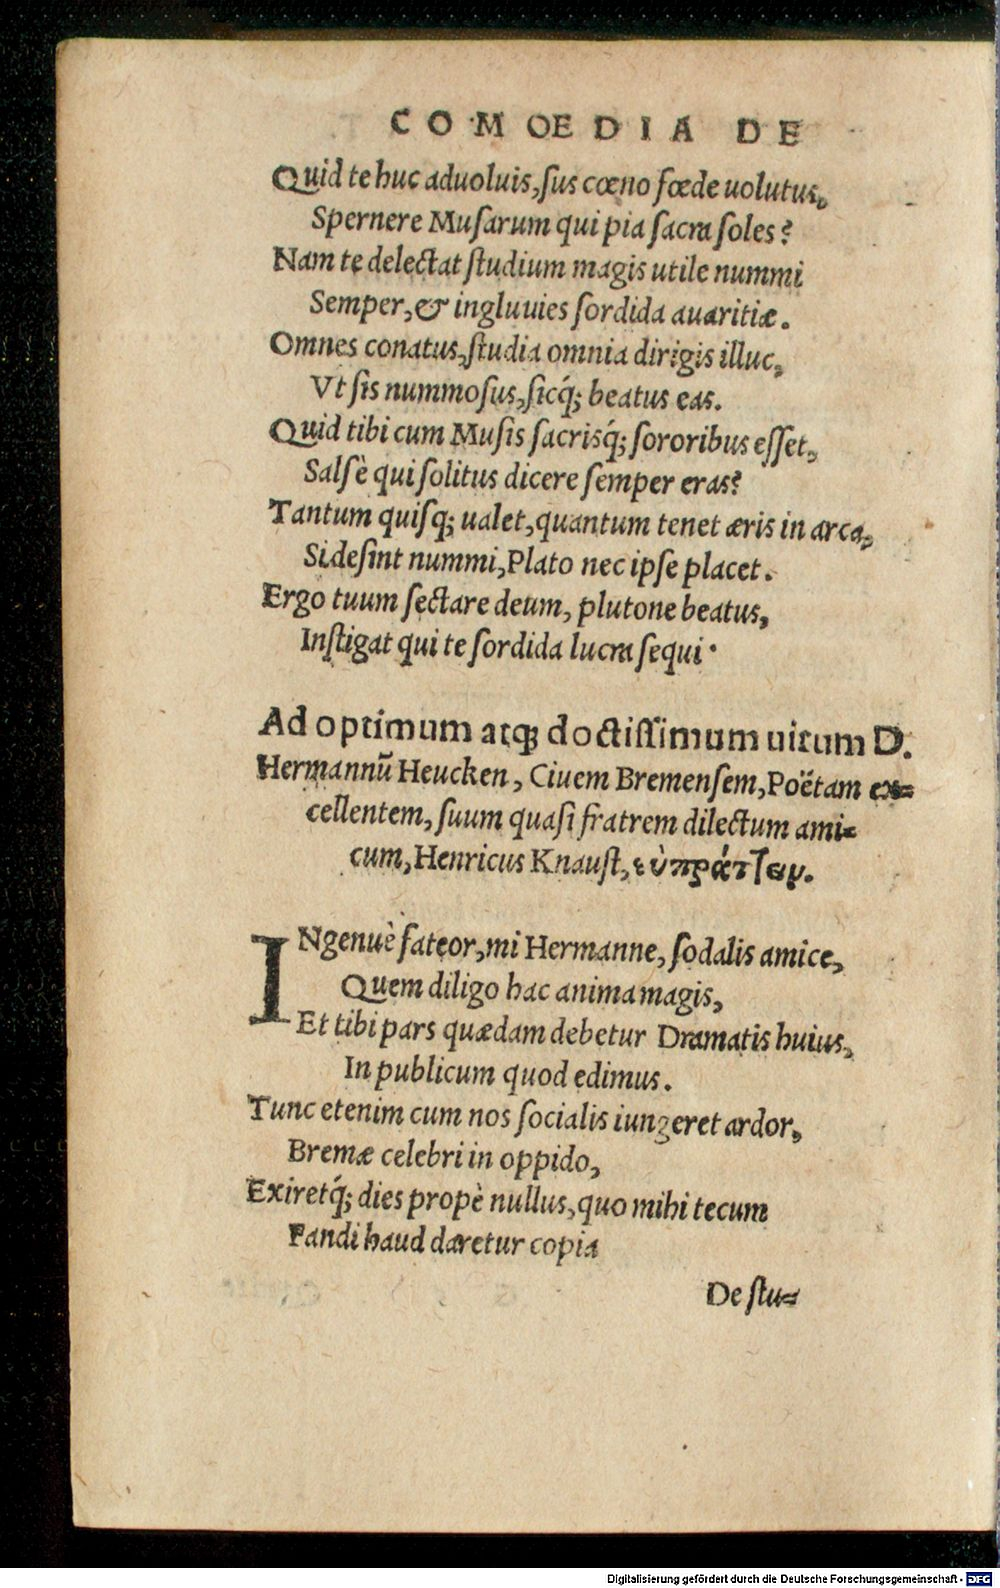 COMŒDIA DE
Quid te huc aduoluis, ſus cœno fœde uolutus,
Spernere Muſarum qui pia ſacra ſoles?
Nam te delectat ſtudium magis utile nummi
Semper, & ingluuies ſordida auaritiæ.
Omnes conatus, ſtudia omnia dirigis illuc,
Vt ſis nummoſus, ſicq́; beatus eas.
Quid tibi cum Muſis ſacrisq́; ſororibus eſſet,
Salſè qui ſolitus dicere ſemper eras?
Tantum quiſq; ualet, quantum tenet æris in arca,
Si deſint nummi, Plato nec ipſe placet.
Ergo tuum ſectare deum, plutone beatus,
Inſtigat qui te ſordida lucra ſequi.
Ad optimum atq; doctiſſimum uirum D.
Hermannū Heucken, Ciuem Bremenſem, Poëtam ex=
cellentem, ſuum quaſi fratrem dilectum ami=
cum, Henricus Knauſt, εὐπράτ]ειν.
INgenuè fateor, mi Hermanne, ſodalis amice,
Quem diligo hac anima magis,
Et tibi pars quædam debetur Dramatis huius,
In publicum quod edimus.
Tunc etenim cum nos ſocialis iungeret ardor,
Bremæ celebri in oppido,
Exiretq́; dies propè nullus, quo mihi tecum
Fandi haud daretur copia
De ſtu=
Digitalisierung gefördert durch die Deutsche Forschungsgemeinschaft - DFG